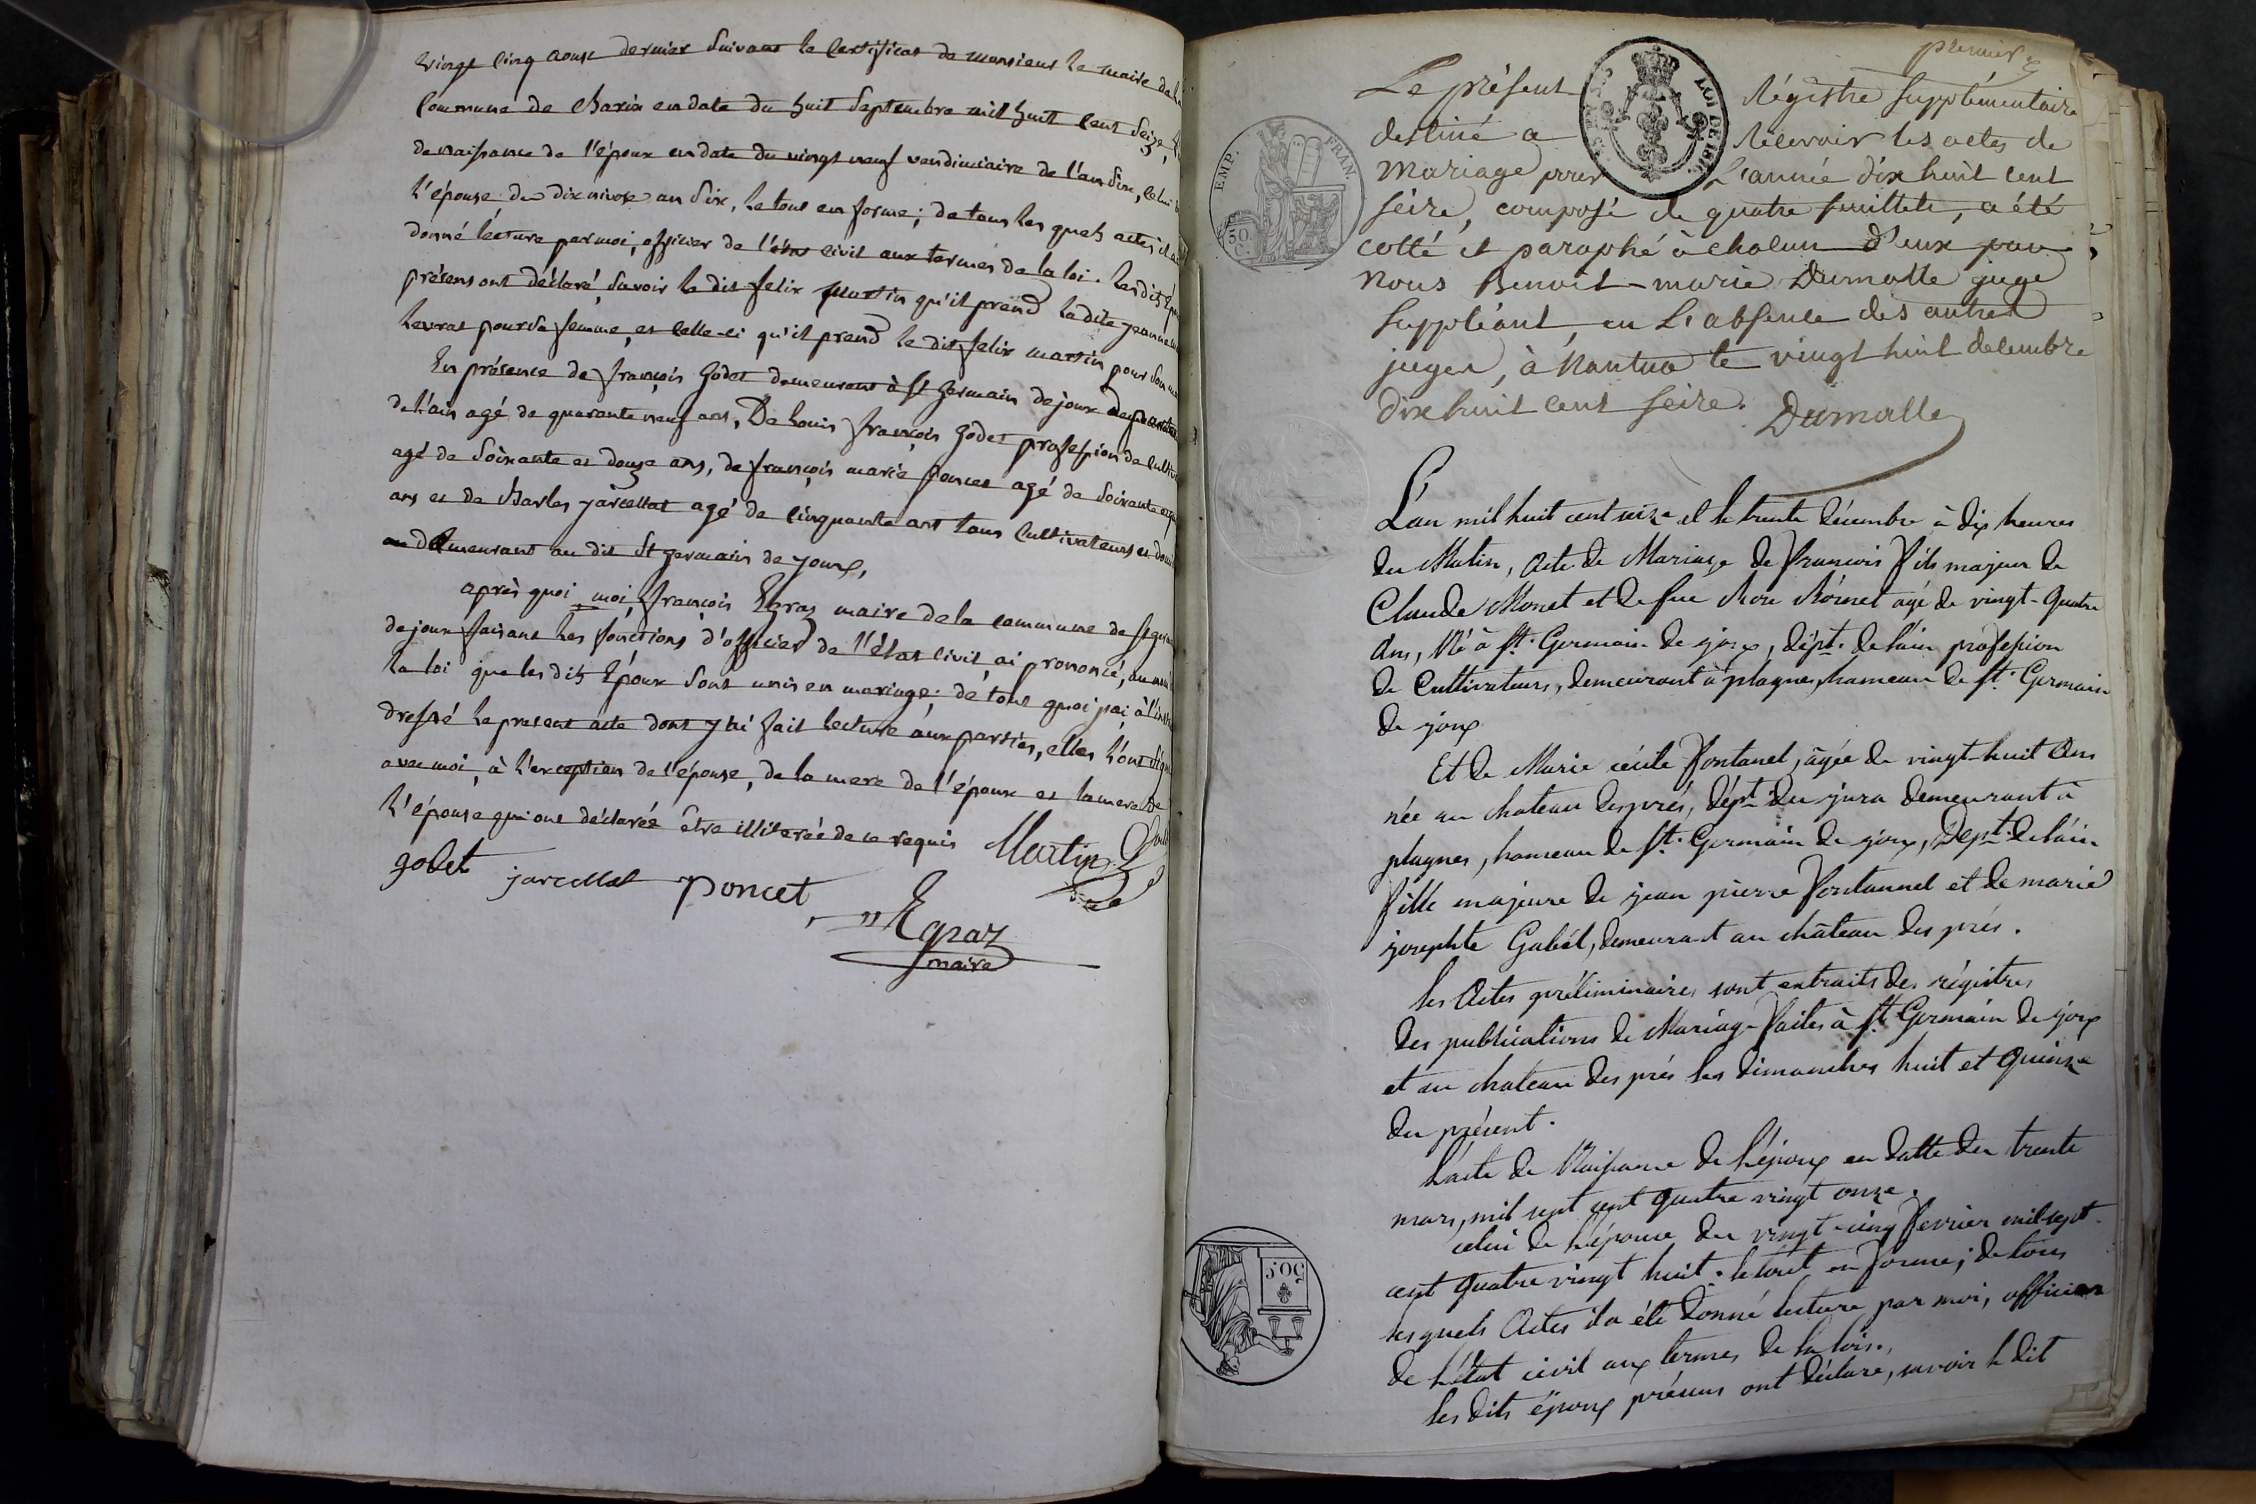 vingt cinq aoust dernier Suivant le Certificat de monsieur le maire de la
Commune de Charix en date du huit Septembre mil huit Cent Seize,
de naissance de l'époux en date du vingt neuf vendimiaire de l'an Six, Celui
l'épouse du dix nivose an Six, le tout en forme; de tous les quels actes il a
donné lecture par moi, officier de l'état civil aux termes de la loi. Les dits Epoux
présens ont déclaré, Savoir le dit felix Martin qu'il prend la dite jeanne
pour Sa femme, et Celle-ci qu'il prend le dit felix martin pour Son
En présence de françois Godet demeurant à St Germain de joux département
de l'ain agé de quarante neuf ans, De Louis françois Godet profession de Cultiv
agé de Soixante et douze ans, de françois marie poncet agé de Soixante
ans et de Charles jarcellat agé de Cinquante ans tous Cultivateurs et
demeurant au dit St germain de joux,
après quoi moi, françois Egraz maire de la commune de St germ
de joux faisant les fonctions d'officier de l'état Civil, ai prononcé, au nom
la loi que les dits Epoux Sont unis en mariage; de tout quoi j'ai à l'ins
dressé le present acte dont j'ai fait lecture aux parties, elles l'ont Signé
avec moi, à l'exception de l'épouse, de la mere de l'époux et la mere de
l'épouse qui ont déclarée être illiterée de ce requis Martin
godet jarcellat poncet
Egraz
maire
premier
Le présent Régistre supplémentaire
destiné a Recevoir les actes de
Mariage pour L'année dix huit cent
seize, composé de quatre feuillets, a été
cotté et paraphé à chacun d'eux par
nous Benoit-marie Dumolle juge
suppléant, en L'absence des autres
juges, à Nantua le vingt huit decembre
dix huit cent seize. Dumolle
EMP. FRAN.
50
C.
LOI DE 1816
L'an mil huit cent seize et le trente Décembre à dix heures
du Matin, Acte de Mariage de François fils majeur de
Claude Monet et de feue Rose Monet agé de vingt-Quatre
Ans, Né à St. Germain de joux, dépt. de l'ain profession
de Cultivateurs, demeurant à plagnes, hameau de St. Germain
de joux
Et de Marie cécile Fontanel, agée de vingt-huit Ans
née au chateau des prés, dépt. du jura demeurant à
plagnes, hameau de St. Germain de joux, Dept. de l'ain
fille majeure de jean pierre Fontannel et de marie
josephte Gabet, demeurant au château des prés.
les Actes préliminaires sont extraits des régistres
des publications de Mariage faites à St Germain de joux
et au chateau des prés les dimanches huit et Quinze
du présent.
L'acte de Naissance de l'époux en datte du trente
mars, mil sept cent quatre vingt onze.
celui de l'épouse du vingt-cinq fevrier mil sept
cent quatre vingt huit. le tout en forme; de tous
lesquels Actes il a été donné lecture par moi, officier
de l'état civil aux termes de la loi.
les dits époux présens ont déclaré, savoir le dit
50C